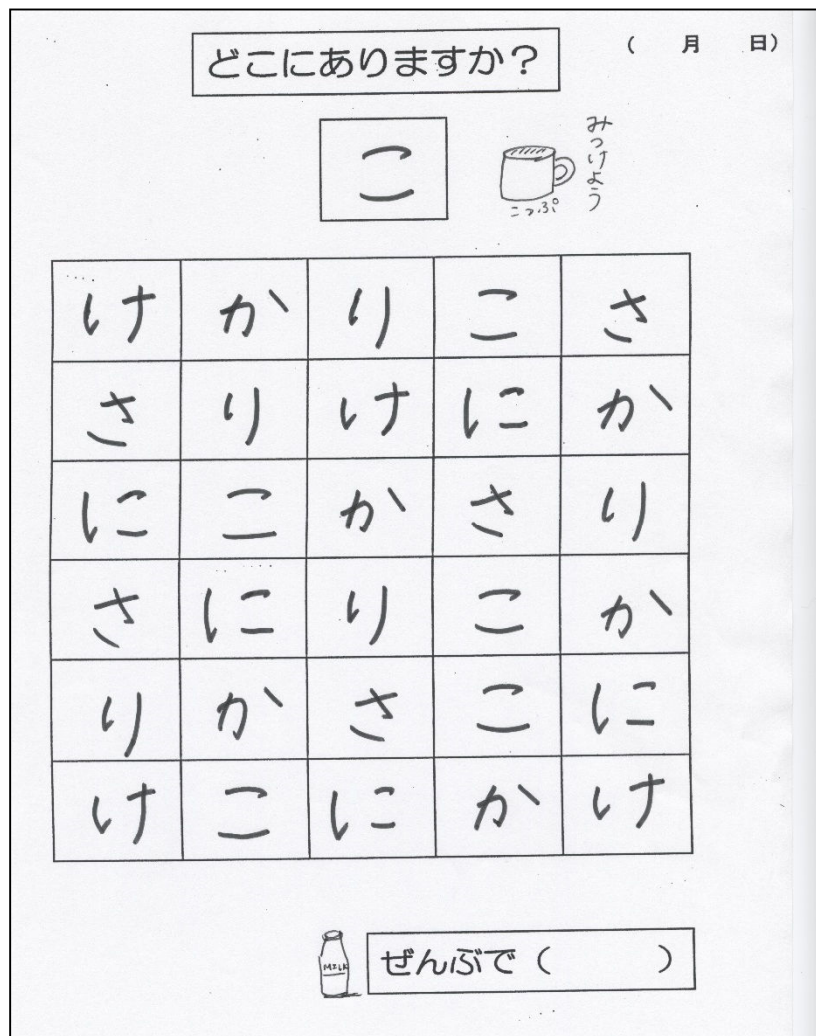 (　月　日)
どこにありますか？
こ
みつけよう
こっぷ
け か り こ さ
さ り け に か
に こ か さ り
さ に り こ か
り か さ こ に
け こ に か け
MILK
ぜんぶで (　　　)